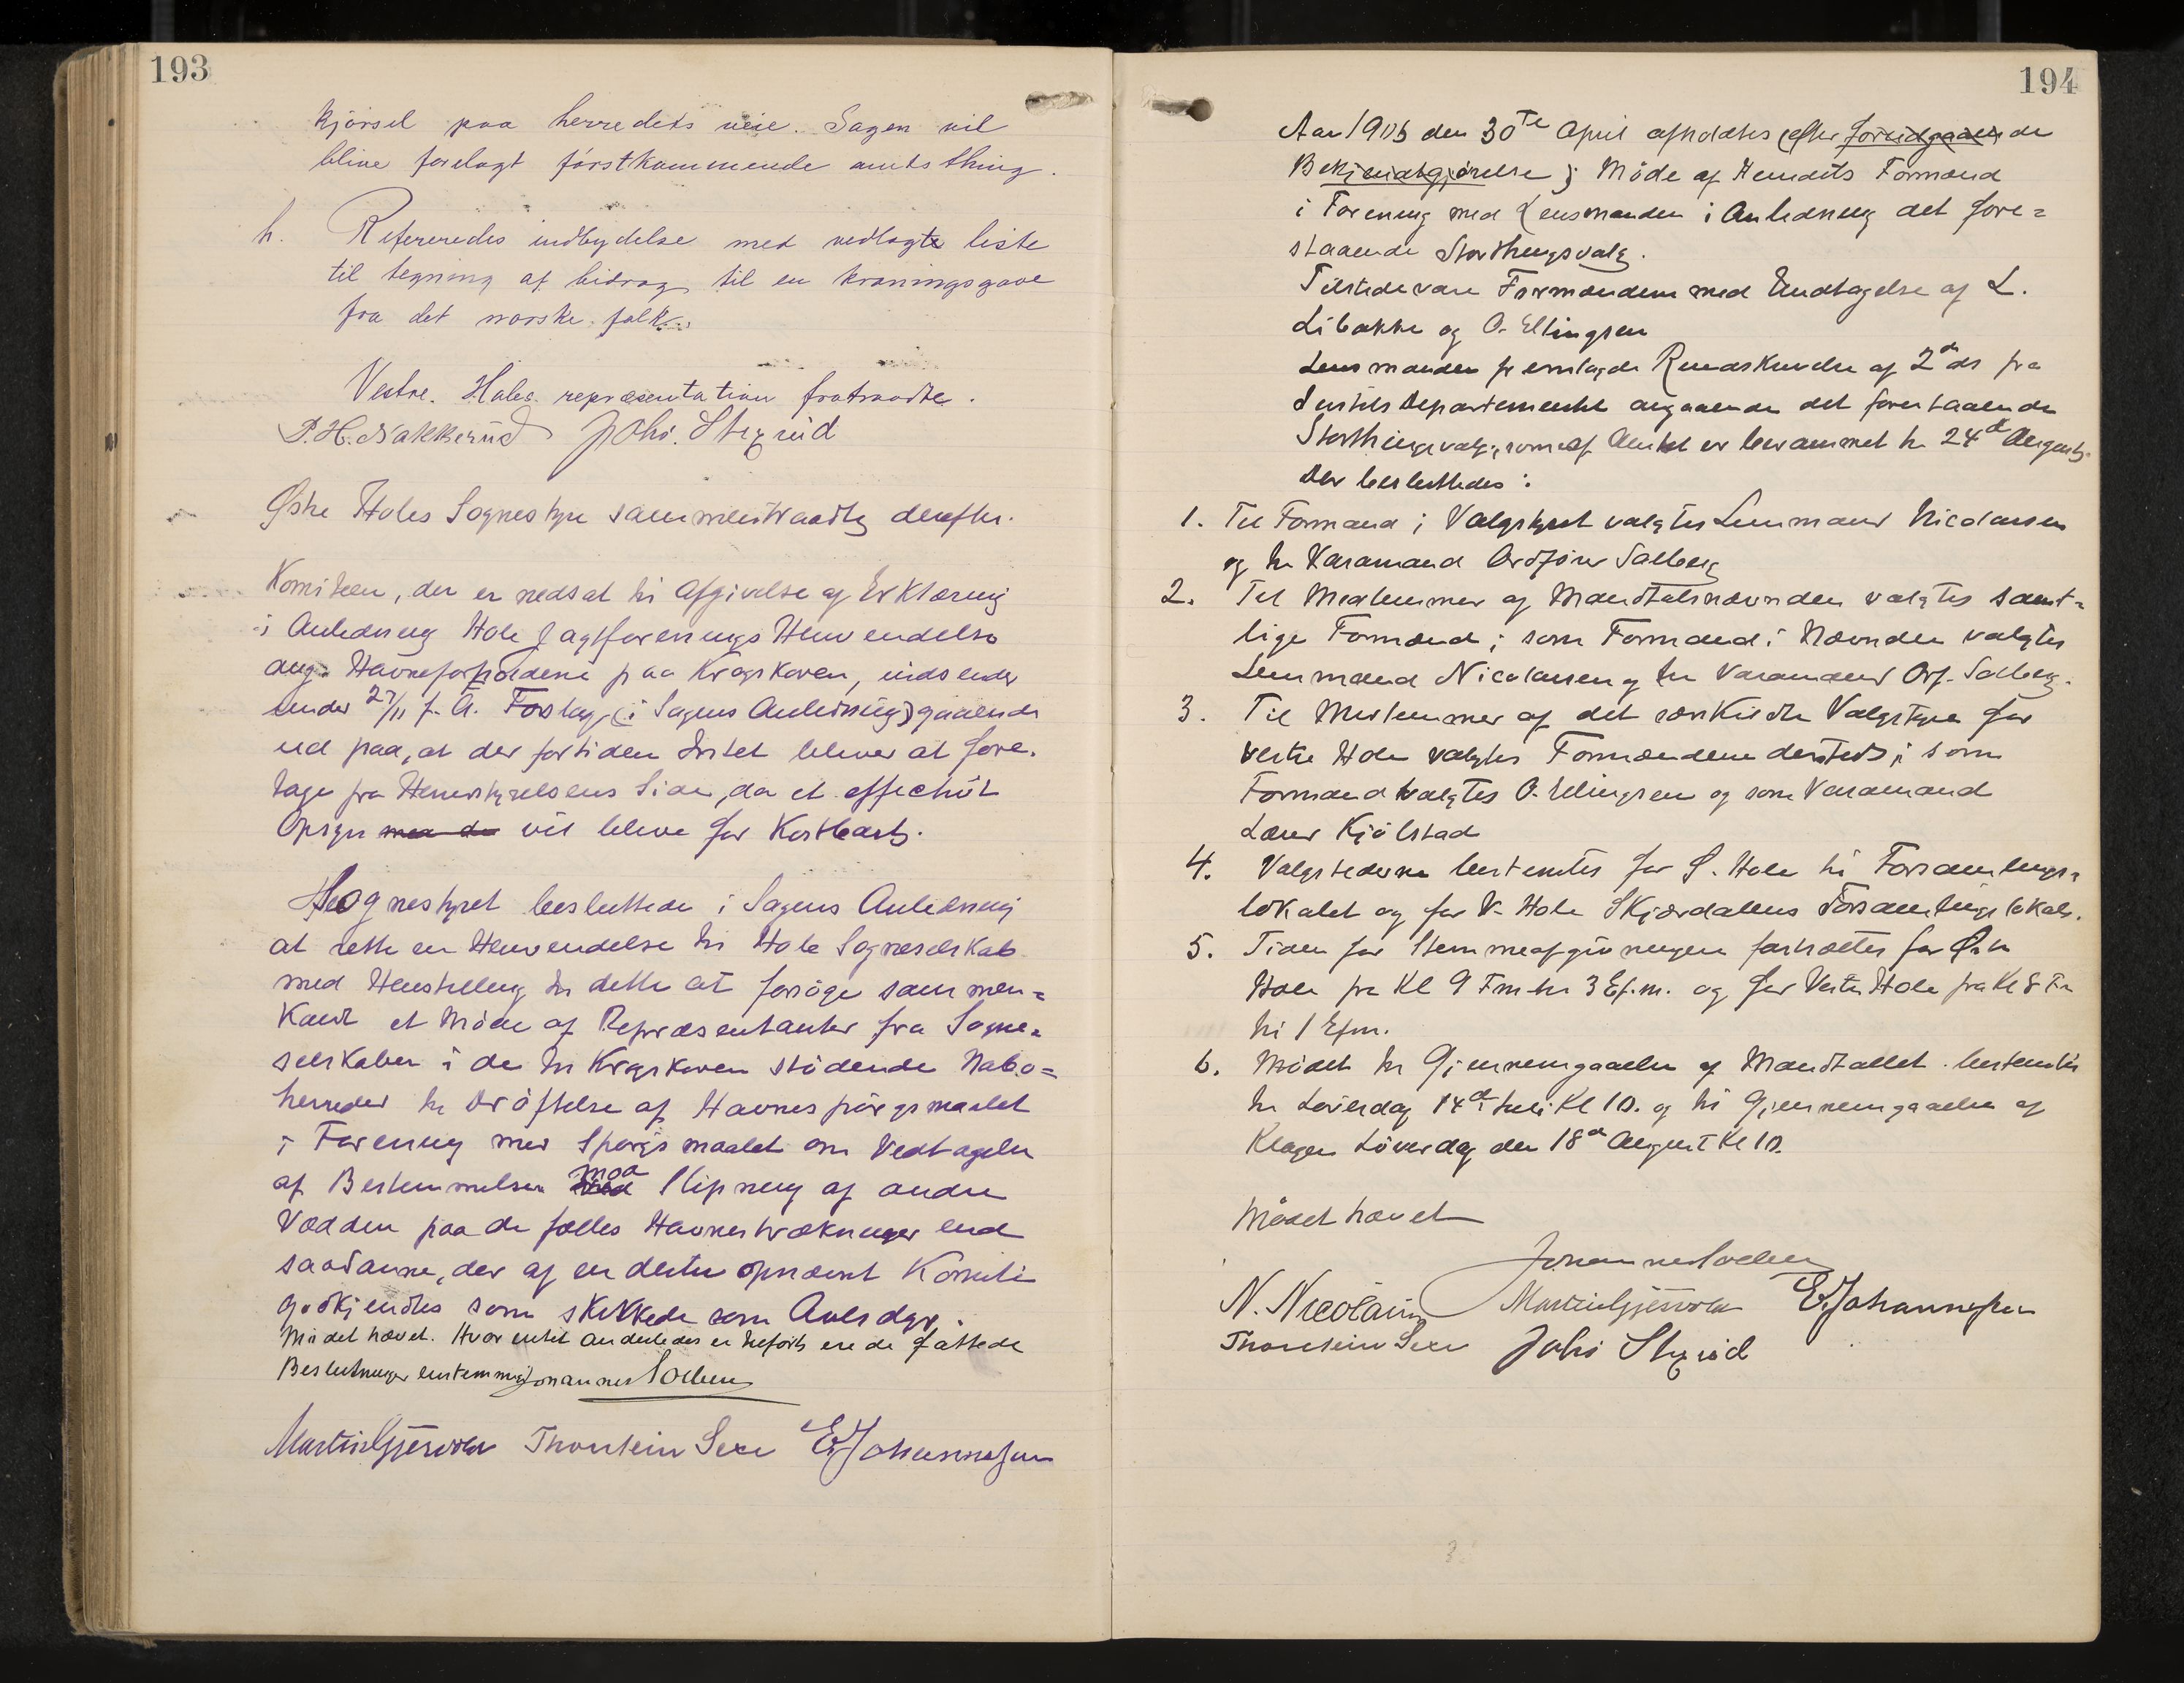 193
kjörsel paa herredets veie. Sagen vil
blive forelagt förstkommende amtsthing.
h. Refereredes indbydelse med vedlagte liste
til tegning af bidrag til en kroningsgave
fra det norske folk.
Vestre. Holes. repræsentation fratraadte.
P.H. Nakkerud Johs. Stixrud
Østre Holes Sognestyre sammentraadte derefter.
Komiteen, der er nedsat til Afgivelse af Erklæring
i Anledning Hole Jagtforenings Henvendelse
ang. Havneforholdene paa Krogskoven, indsender
under 27/11 f. A. Forslag (i Sagens Anledning) gaaende
ud paa, at der for tiden Intet bliver at fore-
tage fra Herredstyrelsens Side, da et effektivt
Opsyn med de vil blive for Kostbart.
Sognestyret besluttede i Sagens Anledning
at rette en Henvendelse til Hole Sogneselskab
med Henstilling til dette at forsöge sammen=
kaldt et Möde af Repræsentanter fra Sogne=
selskaber i de til Krogskoven stödende Nabo=
herreder til Dröftelse af Havnespörgsmaalet
i Forening med Spörgsmaalet om Vedtagelse
af Bestemmelser moa Slipning af andre
Vædden paa de fælles Havnestrækninger end
saadanne, der af en dertil opnævnt Komite
godkjendtes som skikkede som Avlsdyr.
Mödet hævet. Hvor intet anderledes er tilfört ere de fattede
Beslutninger enstemmig Johannes Solberg
Martin Gjesvold Thorstein Sexe E. Johannessen
194
Aar 1906 den 30te April afholdtes efter foreudgaaende
Bekjendtgjörelse Möde af Herredets Formænd
i Forening med Lensmanden i Anledning det fore=
staaende Storthingsvalg.
Tilstede vare Formændene med Undtagelse af L.
Libakke og O. Ellingsen
Lensmanden fremlagde Rundskrivelse af 2den ds fra
Justits Departementet angaaende det forestaaende
Storthingsvalg, som af Amtet er berammet til 24de August.
Der besluttedes:
1. Til Formand i Valgstyret valgtes Lensmand Nicolaisen
og til Varamand Ordförer Solberg
2. Til Medlemmer af Mandtalsnævnden valgtes samt=
lige Formænd; som Formand i Nævnden valgtes
Lensmand Nicolaisen og til Varamand Orf. Solberg.
3. Til Medlemmer af det særskildte Valgstyre for
Vestre Hole valgtes Formændene dersteds; som
Formand valgtes O. Ellingsen og som Varamand
Lærer Kjölstad
4. Valgstederne bestemtes for Ø. Hole til Forsamlings=
lokalet og for V. Hole Skjærdalens Forsamlingslokale.
5. Tiden for Stemmeafgivningen fastsættes for Østre
Hole fra Kl 9 Fm til 3 Ef.m. og for Vestre Hole fra Kl 8 Fm
til 1 Efm.
6. Mödet til Gjennemgaaelse af Mandtallet bestemtes
til Löverdag 14de Juli Kl 10. og til Gjennemgaaelse af
Klager Löverdag den 18de August Kl 10.
Mödet hævet
Johannes Solberg
N. Nicolaisen Martin Gjesvold E. Johannessen
Thorstein Sexe Johs Stixrud